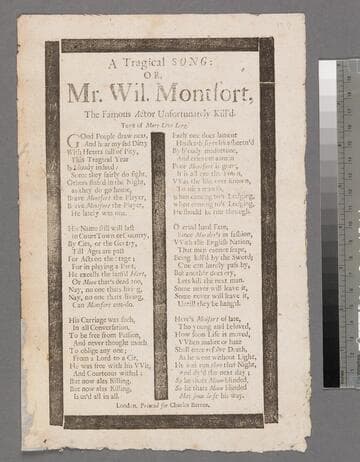 A Tragical SONG:
OR,
Mr. Wil. Montfort,
The Famous Actor Unfortunately Kill'd.
Tune of Mary Live Long.
GOod People draw near,
And hear my sad Ditty
With Hearts full of Pity,
This Tragical Year
Bloody indeed:
Some they fairly do fight,
Others stab'd in the Night,
as they do go home,
Brave Montfort the Player,
Brave Montfort the Player,
He lately was one.
His Name still will last
in Court Town or Country,
By City, or the Gentry,
Till Ages are past
For Acts on the stage;
For in playing a Part,
He excells the Art,
Or Man that's dead too,
Nay, no one that's living,
Nay, no one that's living,
Can Montfort out-do.
His Carriage was such,
In all Conversation,
To be free from Passion,
And never thought much
To oblige any one;
From a Lord to a Cit,
He was free with his VVit,
And Courteous withal;
But now alas Killing,
But now alas Killing,
Is us'd all in all.
Each one does lament
By bloudy misfortune,
Poor Montfort is gone,
It is all o're the Town,
VVas the his, ever known,
when coming to's Lodging,
when coming to's Lodging,
He should be run through.
O cruel hard Fate,
Since Murder's in fashion,
VVith the English Nation,
That men cannot scape,
Being kill'd by the Sword;
One can hardly pass by,
But another does cry,
Lets kill the next man.
Some never will leave it,
Some never will leave it,
Untill they be hang'd.
Here's Montfort of late,
Tho young and beloved,
How soon Life is moved,
VVhen maker or hate
Shall once resolve Death,
As he went without Light,
He was run thro' that Night,
and dy'd the next day;
So let that's Man blinded,
So let that's Man blinded,
May soon lose his way.
London, Printed for Charles Barnet.